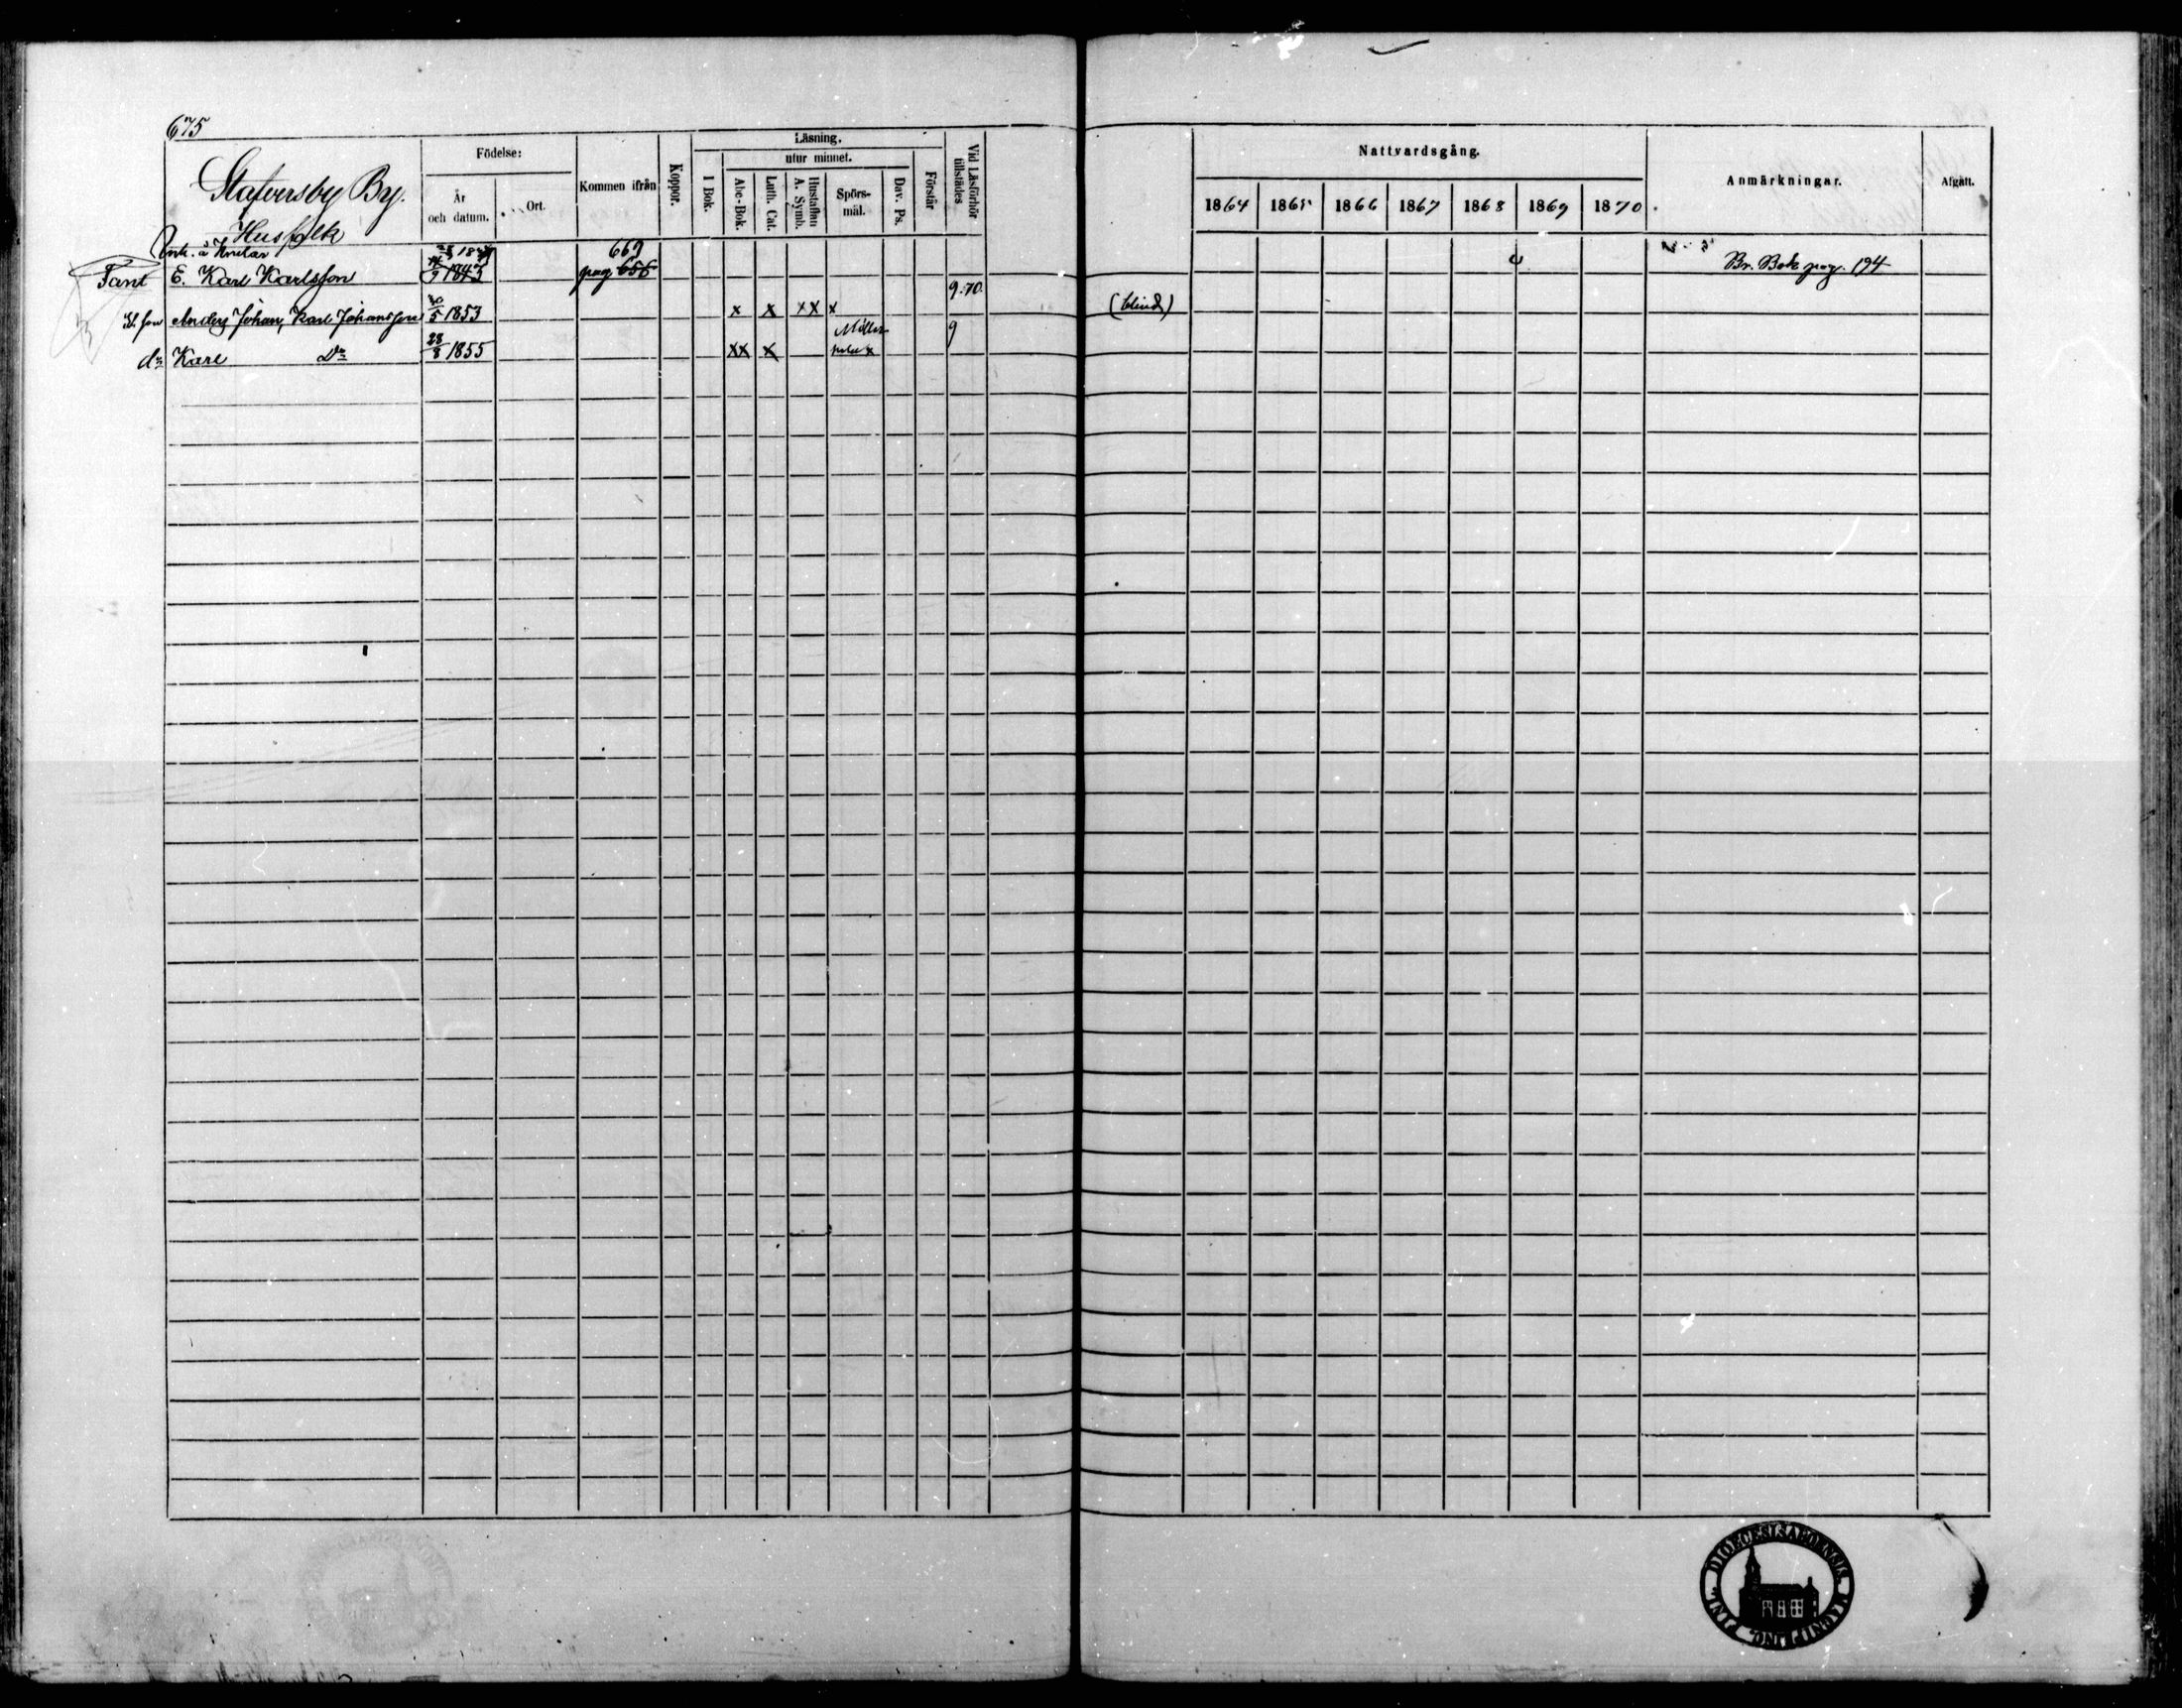 675
Stafversby By.
Husfolk
Födelse:
År
och datum.
Ort.
Kommen ifrån
Koppor.
Läsning.
utur minnet.
I Bok.
Abc-Bok.
Luth. Cat.
Hustaflan
A. Symb.
Spörs-
mål.
Dav. Ps.
Förstår
Vid Läsförhör
tillstädes
Nattvardsgång.
1864 1865 1866 1867 1868 1869 1870
Anmärkningar.
Afgått.
669
E. Karl Karlsson 1843 pag. 656 Br. Bok pag. 194
9.70.
St. son Anders Johan, Karl Johansson 30/5 1853 x x xx x (blind)
9
do Karl Do 28/8 1855 xx x x
DIOECESIS ABOENSIS
FINL.